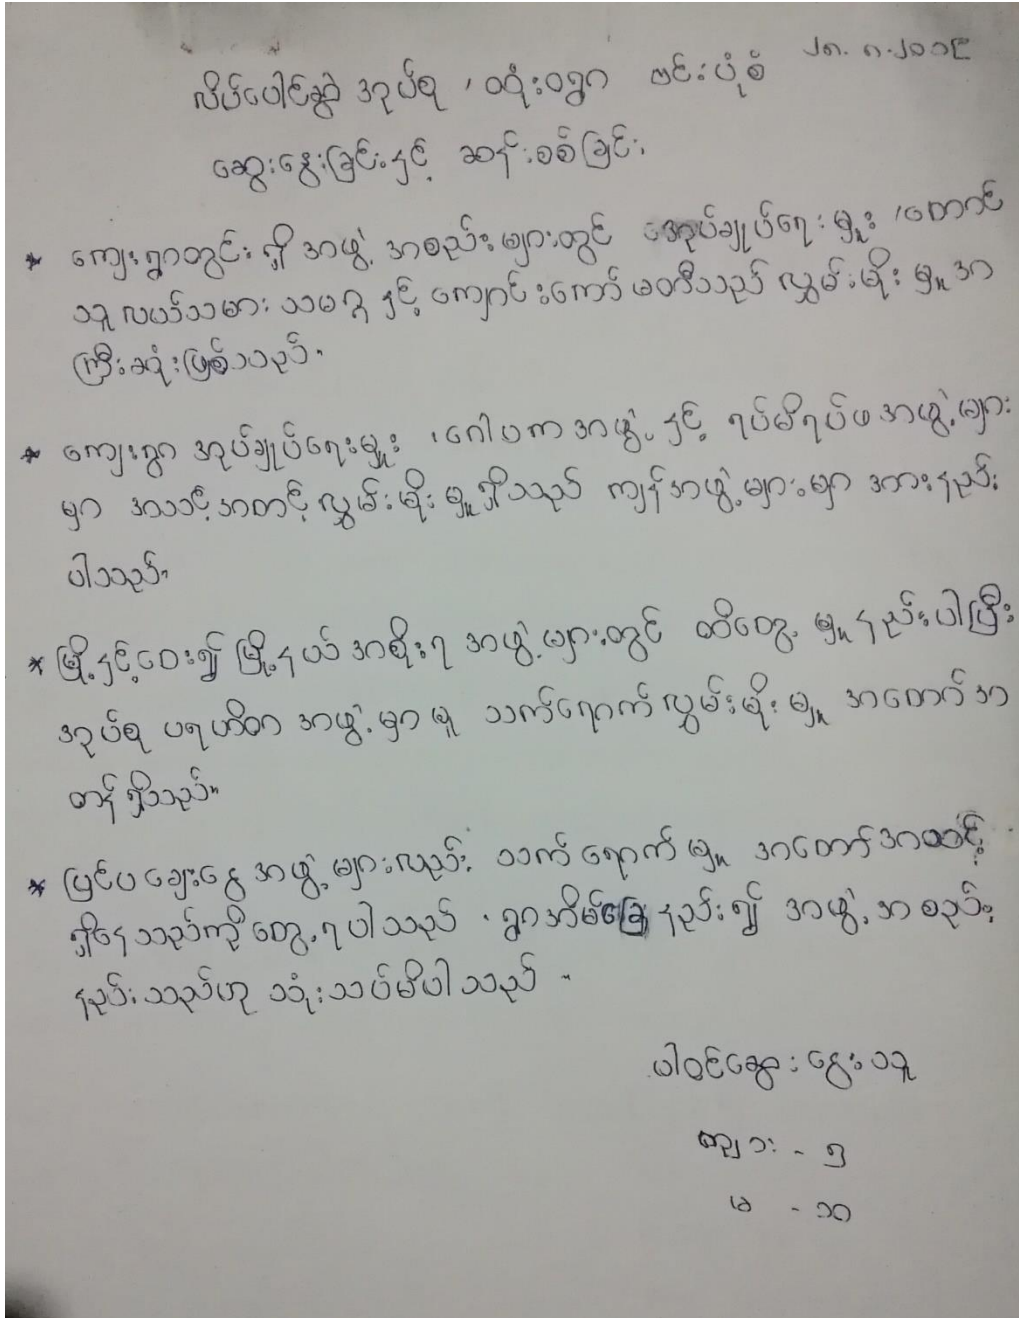 ၂၈.၈.၂၀၁၉
လိပ်ပေါင်ဆွဲ အုပ်စု ၊ ဝဲုံးဝရွာ ဗင်းပုံစံ
ဆွေးနွေးခြင်းနှင့် ဆန်းစစ်ခြင်း
* ကျေးရွာတွင်းရှိ အဖွဲ့ အစည်းများတွင် အုပ်ချုပ်ရေးမှူး ၊တောင်
သူလယ်သမား သမဂ္ဂ နှင့် ကျောင်းကော်မတီသည် လွှမ်းမိုးမှု အ
ကြီးဆုံးဖြစ်သည်။
* ကျေးရွာ အုပ်ချုပ်ရေးမှူး ၊ ဂေါပက အဖွဲ့ နှင့် ရပ်မိရပ်ဖ အဖွဲ့များ
မှာ အသင့်အတင့် လွှမ်းမိုးမှုရှိသည် ကျန်အဖွဲ့များမှာ အားနည်း
ပါသည်။
* မြို့နှင့်ဝေး၍ မြို့နယ် အစိုးရ အဖွဲ့များတွင် ထိတွေ့မှုနည်းပါပြီး
အုပ်စု ပရဟိတ အဖွဲ့မှာမူ သက်ရောက် လွှမ်းမိုးမှု အတော်အ
တန် ရှိသည်။
* ပြင်ပ ချေးငွေ အဖွဲ့များလည်း သက်ရောက်မှု အတော်အတင့်
ရှိနေသည်ကို တွေ့ရပါသည် ၊ ရွာအိမ်ခြေနည်း၍ အဖွဲ့အစည်း
နည်းသည်ဟု သုံးသပ်မိပါသည် ။
ပါဝင်ဆွေးနွေးသူ
ကျား - ၅
မ - ၁၀